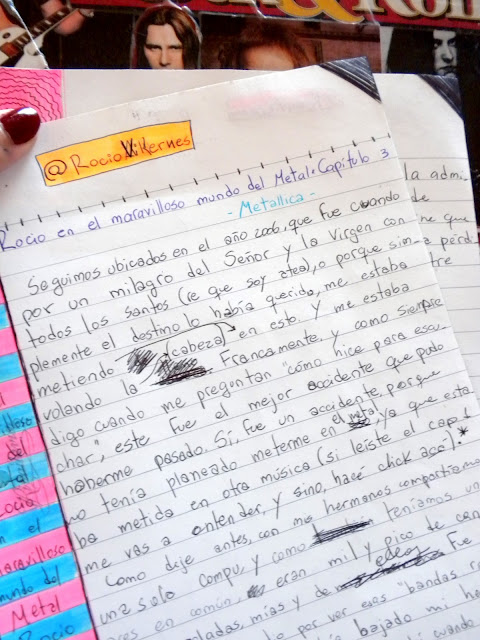 & Ro
@RocioViKernes
Rocio en el maravilloso mundo del Metal • Capítulo 3
- Metallica -
Seguimos ubicados en el año 2006, que fue cuando
por un milagro del Señor y la Virgen con
todos los santos (je que soy atea), o porque sim-
plemente el destino lo había querido, me estaba
metiendo en esto, y me estaba
volando la cabeza
Francamente, y como siempre
digo cuando me preguntan "cómo hice para escu
char", este fue el mejor accidente que pudo
haberme pasado. Sí, fue un accidente, porque
no tenía planeado meterme en el metal, ya que esta
ba metida en otra música (si leíste el cap 1
me vas a entender, y sino, hacé click acá).*
Como dije antes, con mis hermanos compartíamos
una sola compu, y como teníamos un
en común, eran mil y pico de can
mías y de ellos Fue
lo por ver esos "bandas
bajado mi he
cuando
la admi-
de
que
a perdi
tre
lloso
del
etal
Rocio
en el
maravilloso
mundo del
Metal
Rocio